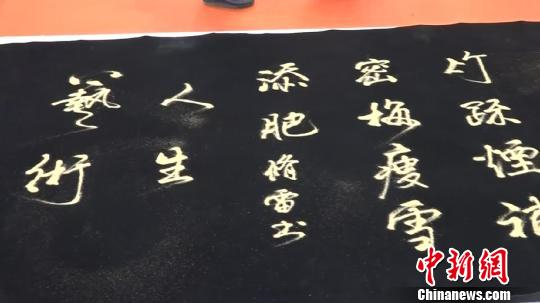 竹踈煙補
密梅瘦雪
添肥脩雷书
人生
藝術
中新网
Chinanews.com